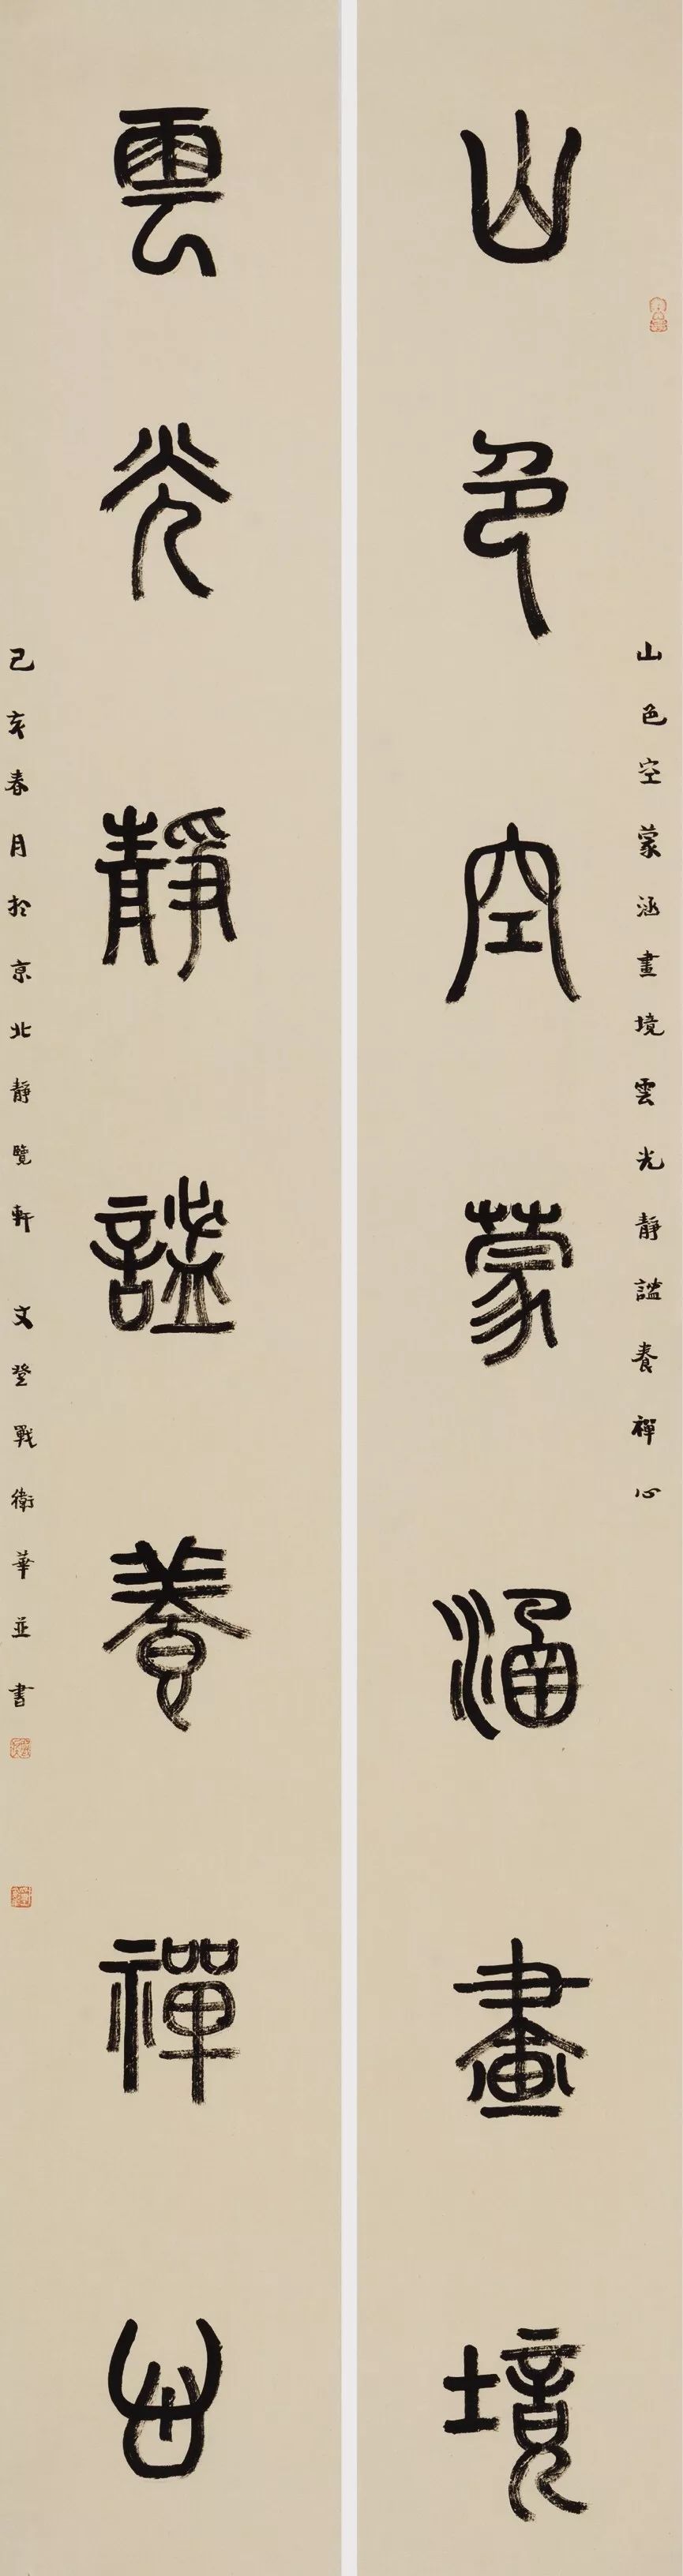 山色空蒙涵畫境
山色空蒙涵畫境雲光靜謐養禪心
雲光靜謐養禪心
己亥春月於京北靜覽軒 文登戰衛華並書